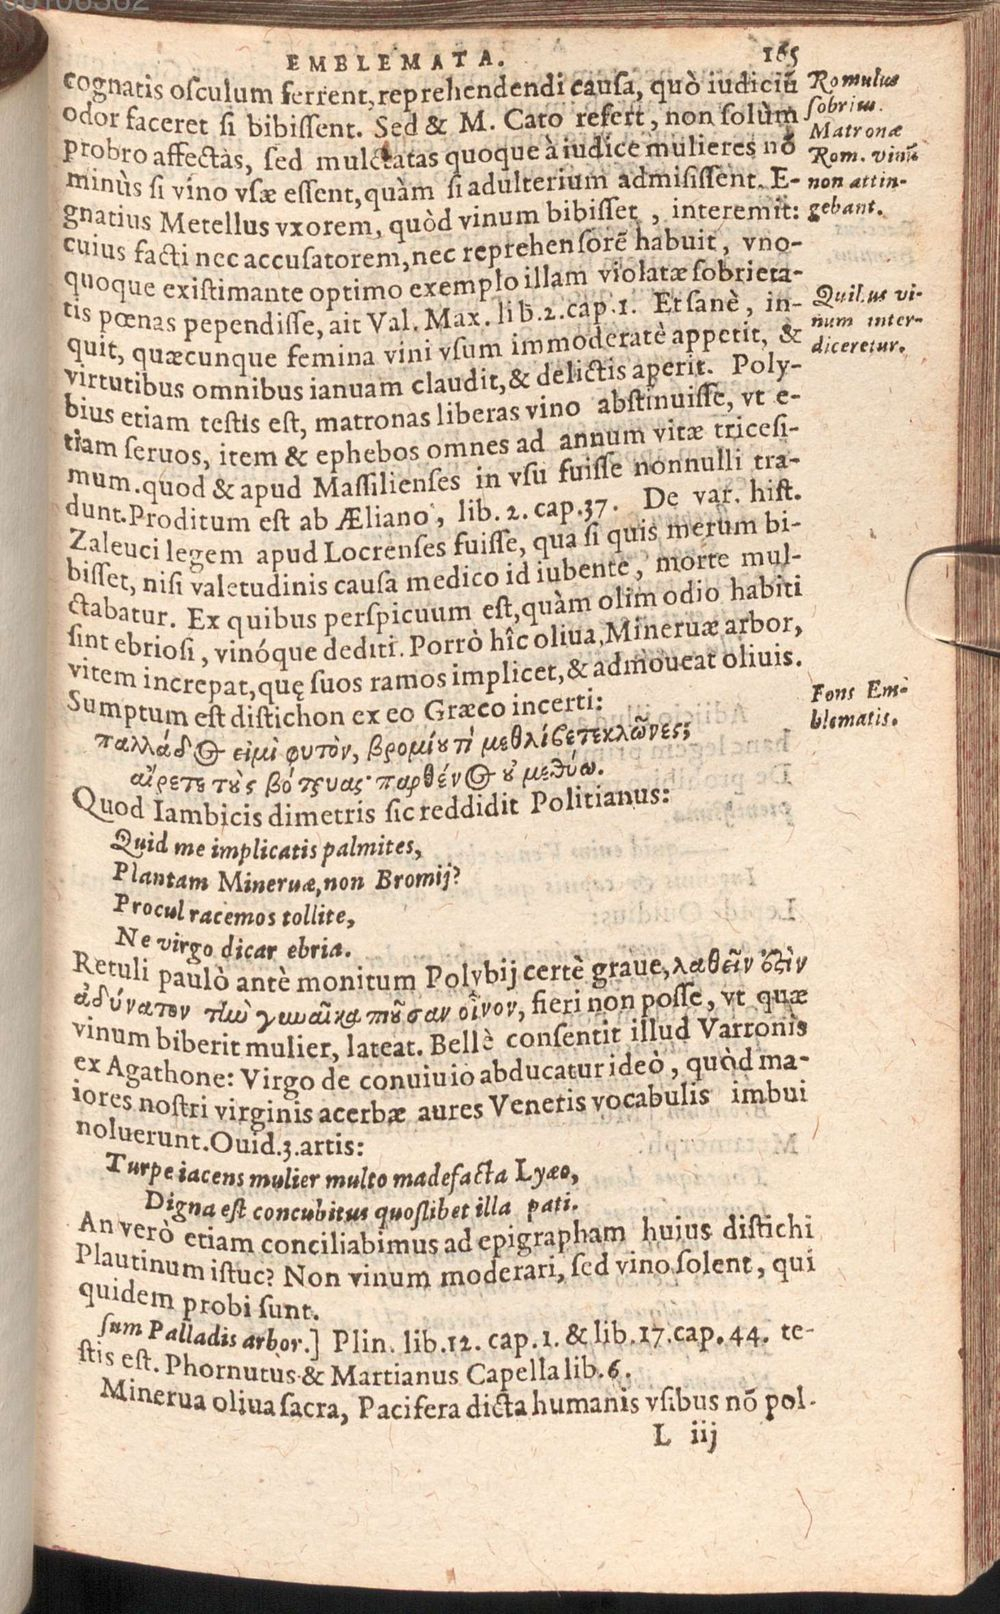 EMBLEMATA. 165
cognatis osculum ferrent, reprehendendi causa, quò iudiciũ
odor faceret si bibissent. Sed & M. Cato refert, non solùm
probro affectas, sed mulctatas quoque à iudice mulieres nõ
minùs si vino vsæ essent, quàm si adulterium admisissent. E-
gnatius Metellus vxorem, quòd vinum bibisset, interemit:
cuius facti nec accusatorem, nec reprehensorẽ habuit, vno-
quoque existimante optimo exemplo illam violatæ sobrieta-
tis pœnas pependisse, ait Val. Max. lib. 2. cap. 1. Et sanè, in-
quit, quæcunque femina vini vsum immoderatè appetit, &
virtutibus omnibus ianuam claudit, & delictis aperit. Poly-
bius etiam testis est, matronas liberas vino abstinuisse, vt e-
tiam seruos, item & ephebos omnes ad annum vitæ tricesi-
mum. quod & apud Massilienses in vsu fuisse nonnulli tra-
dunt. Proditum est ab Æliano, lib. 2. cap. 37. De var. hist.
Zaleuci legem apud Locrenses fuisse, qua si quis merum bi-
bisset, nisi valetudinis causa medico id iubente, morte mul-
ctabatur. Ex quibus perspicuum est, quàm olim odio habiti
sint ebriosi, vinóque dediti. Porrò hîc oliua, Mineruæ arbor,
vitem increpat, quę suos ramos implicet, & admoueat oliuis.
Sumptum est distichon ex eo Græco incerti:
παλλάδος εἰμὶ φυτόν, βρομίου τί με θλίβετε κλῶνες;
αἴρετε τοὺς βότρυας· παρθένος οὐ μεθύω.
Quod Iambicis dimetris sic reddidit Politianus:
Quid me implicatis palmites,
Plantam Mineruæ, non Bromij?
Procul racemos tollite,
Ne virgo dicar ebria.
Retuli paulò antè monitum Polybij certè graue, λαθεῖν ἐστὶν
ἀδύνατον τὴν γυναῖκα πιοῦσαν οἶνον, fieri non posse, vt quæ
vinum biberit mulier, lateat. Bellè consentit illud Varronis
ex Agathone: Virgo de conuiuio abducatur ideò, quòd ma-
iores nostri virginis acerbæ aures Veneris vocabulis imbui
noluerunt. Ouid. 3. artis:
Turpe iacens mulier multo madefacta Lyæo,
Digna est concubitus quoslibet illa pati.
An verò etiam conciliabimus ad epigrapham huius distichi
Plautinum istuc? Non vinum moderari, sed vino solent, qui
quidem probi sunt.
sum Palladis arbor.] Plin. lib. 12. cap. 1. & lib. 17. cap. 44. te-
stis est. Phornutus & Martianus Capella lib. 6.
Minerua oliua sacra, Pacifera dicta humanis vsibus nõ pol-
L iij
Romulus
sobrius.
Matronæ
Rom. vinũ
non attin-
gebant.
Quibus vi-
num inter-
diceretur.
Fons Em-
blematis.